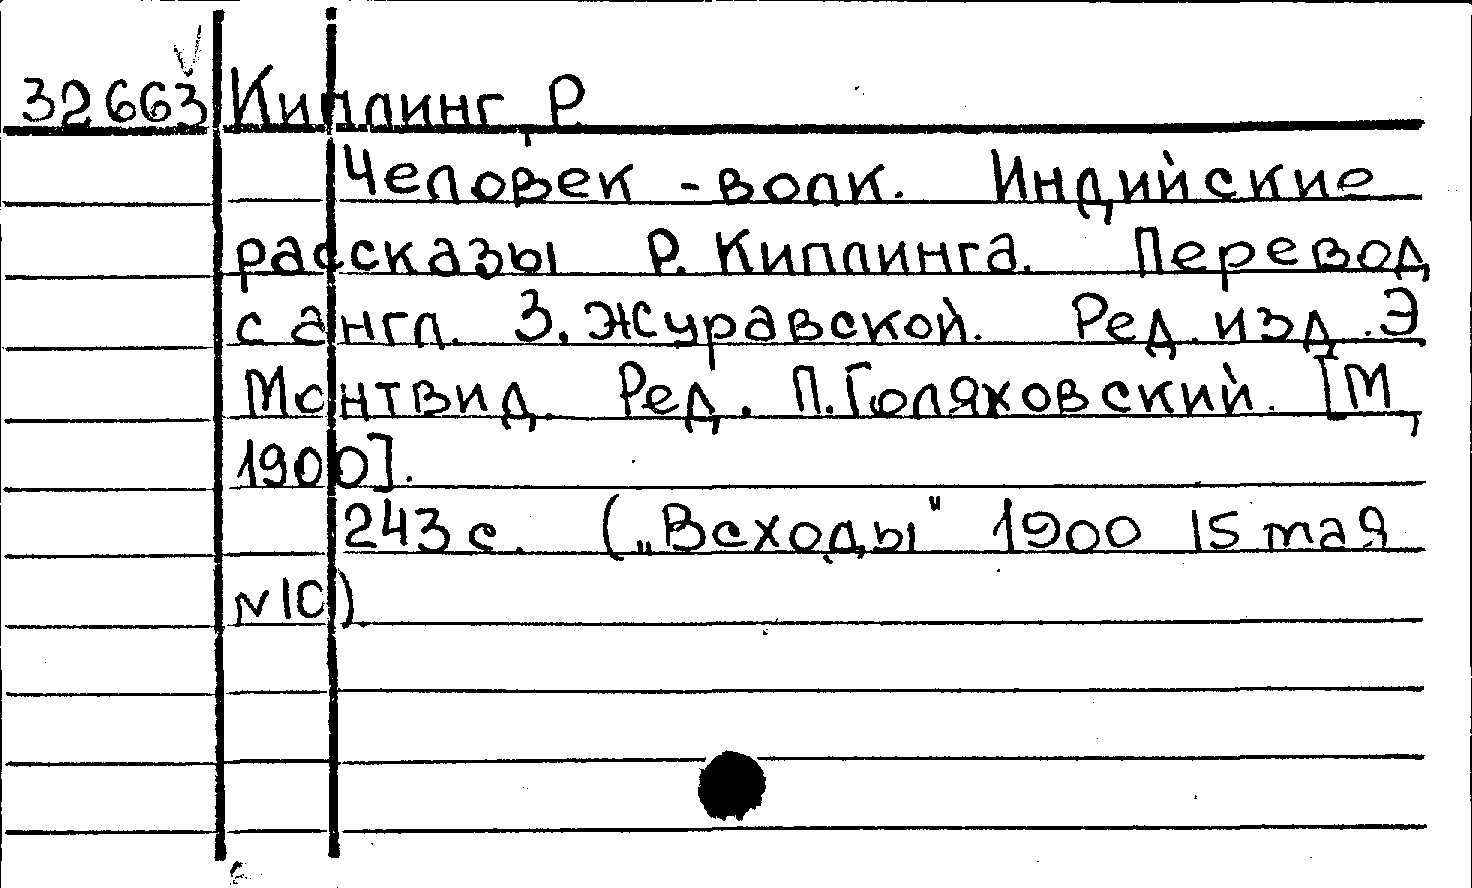 32663 Киплинг, Р.
Человек-волк. Индийские
рассказы Р. Киплинга. Перевод
с англ. З. Журавской. Ред. изд. Э.
Монтвид. Ред. П. Голяховский. [М.,
1900].
243 с. („Всходы" 1900 15 мая
№10).